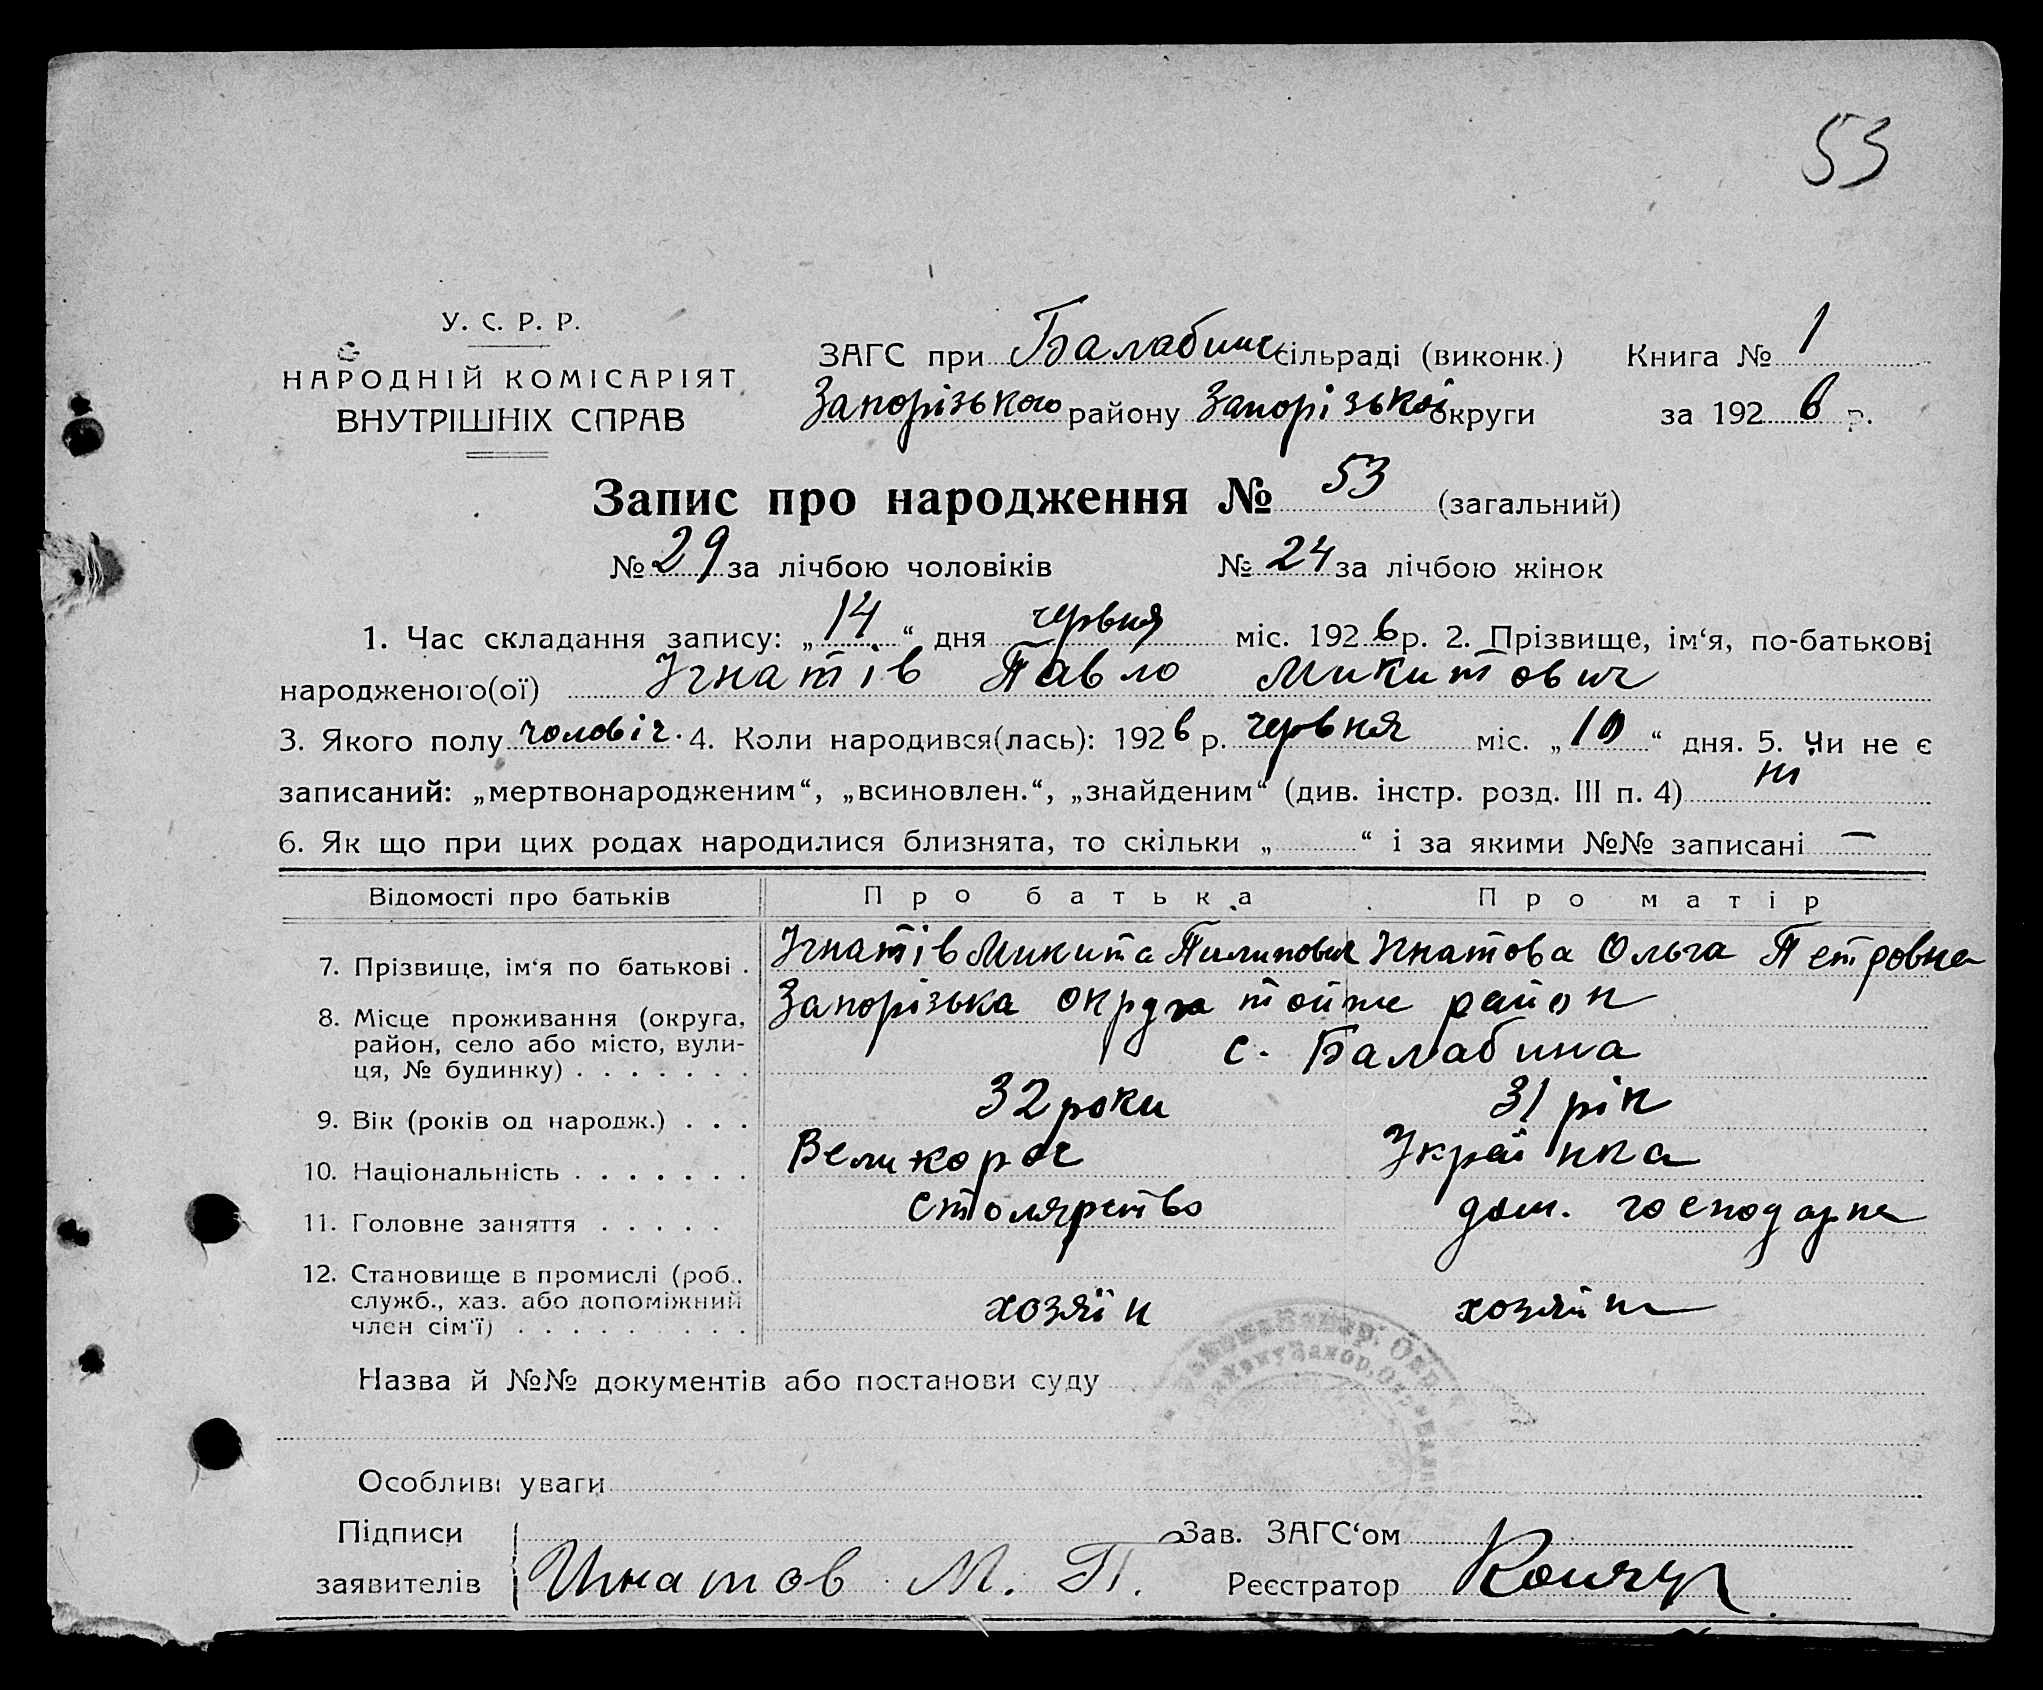 53
У. С. Р. Р.
НАРОДНІЙ КОМІСАРІЯТ
ВНУТРІШНІХ СПРАВ
ЗАГС при Балабинс сільраді (виконк.) Книга № 1
Запорізького району Запорізької округи за 1926 р.
Запис про народження № 53 (загальний)
№ 29 за лічбою чоловіків № 24 за лічбою жінок
1. Час складання запису: „14“ дня червня міс. 1926 р. 2. Прізвище, ім‘я, по-батькові
народженого(ої) Ігнатів Павло Микитович
3. Якого полу чоловіч. 4. Коли народився(лась): 1926 р. червня міс. „10“ дня. 5. Чи не є
записаний: „мертвонародженим“, „всиновлен.“, „знайденим“ (див. інстр. розд. III п. 4) ні
6. Як що при цих родах народилися близнята, то скільки „ “ і за якими №№ записані —
Відомості про батьків Про батька Про матір
7. Прізвище, ім‘я по батькові . Ігнатів Микита Пилипович Ігнатова Ольга Петровна
8. Місце проживання (округа, Запорізька округа тойже район
район, село або місто, вули- с. Балабина
ця, № будинку) . . . . . . .
9. Вік (років од народж.) . . . 32 роки 31 рік
10. Національність . . . . . . . Великорос Українка
11. Головне заняття . . . . . столярство дом. господарка
12. Становище в промислі (роб.,
служб., хаз. або допоміжний хозяїн хозяїн
член сім‘ї) . . . . . . . . .
Назва й №№ документів або постанови суду
Особливі уваги
Підписи Зав. ЗАГС‘ом
заявителів Игнатов М. П. Реєстратор